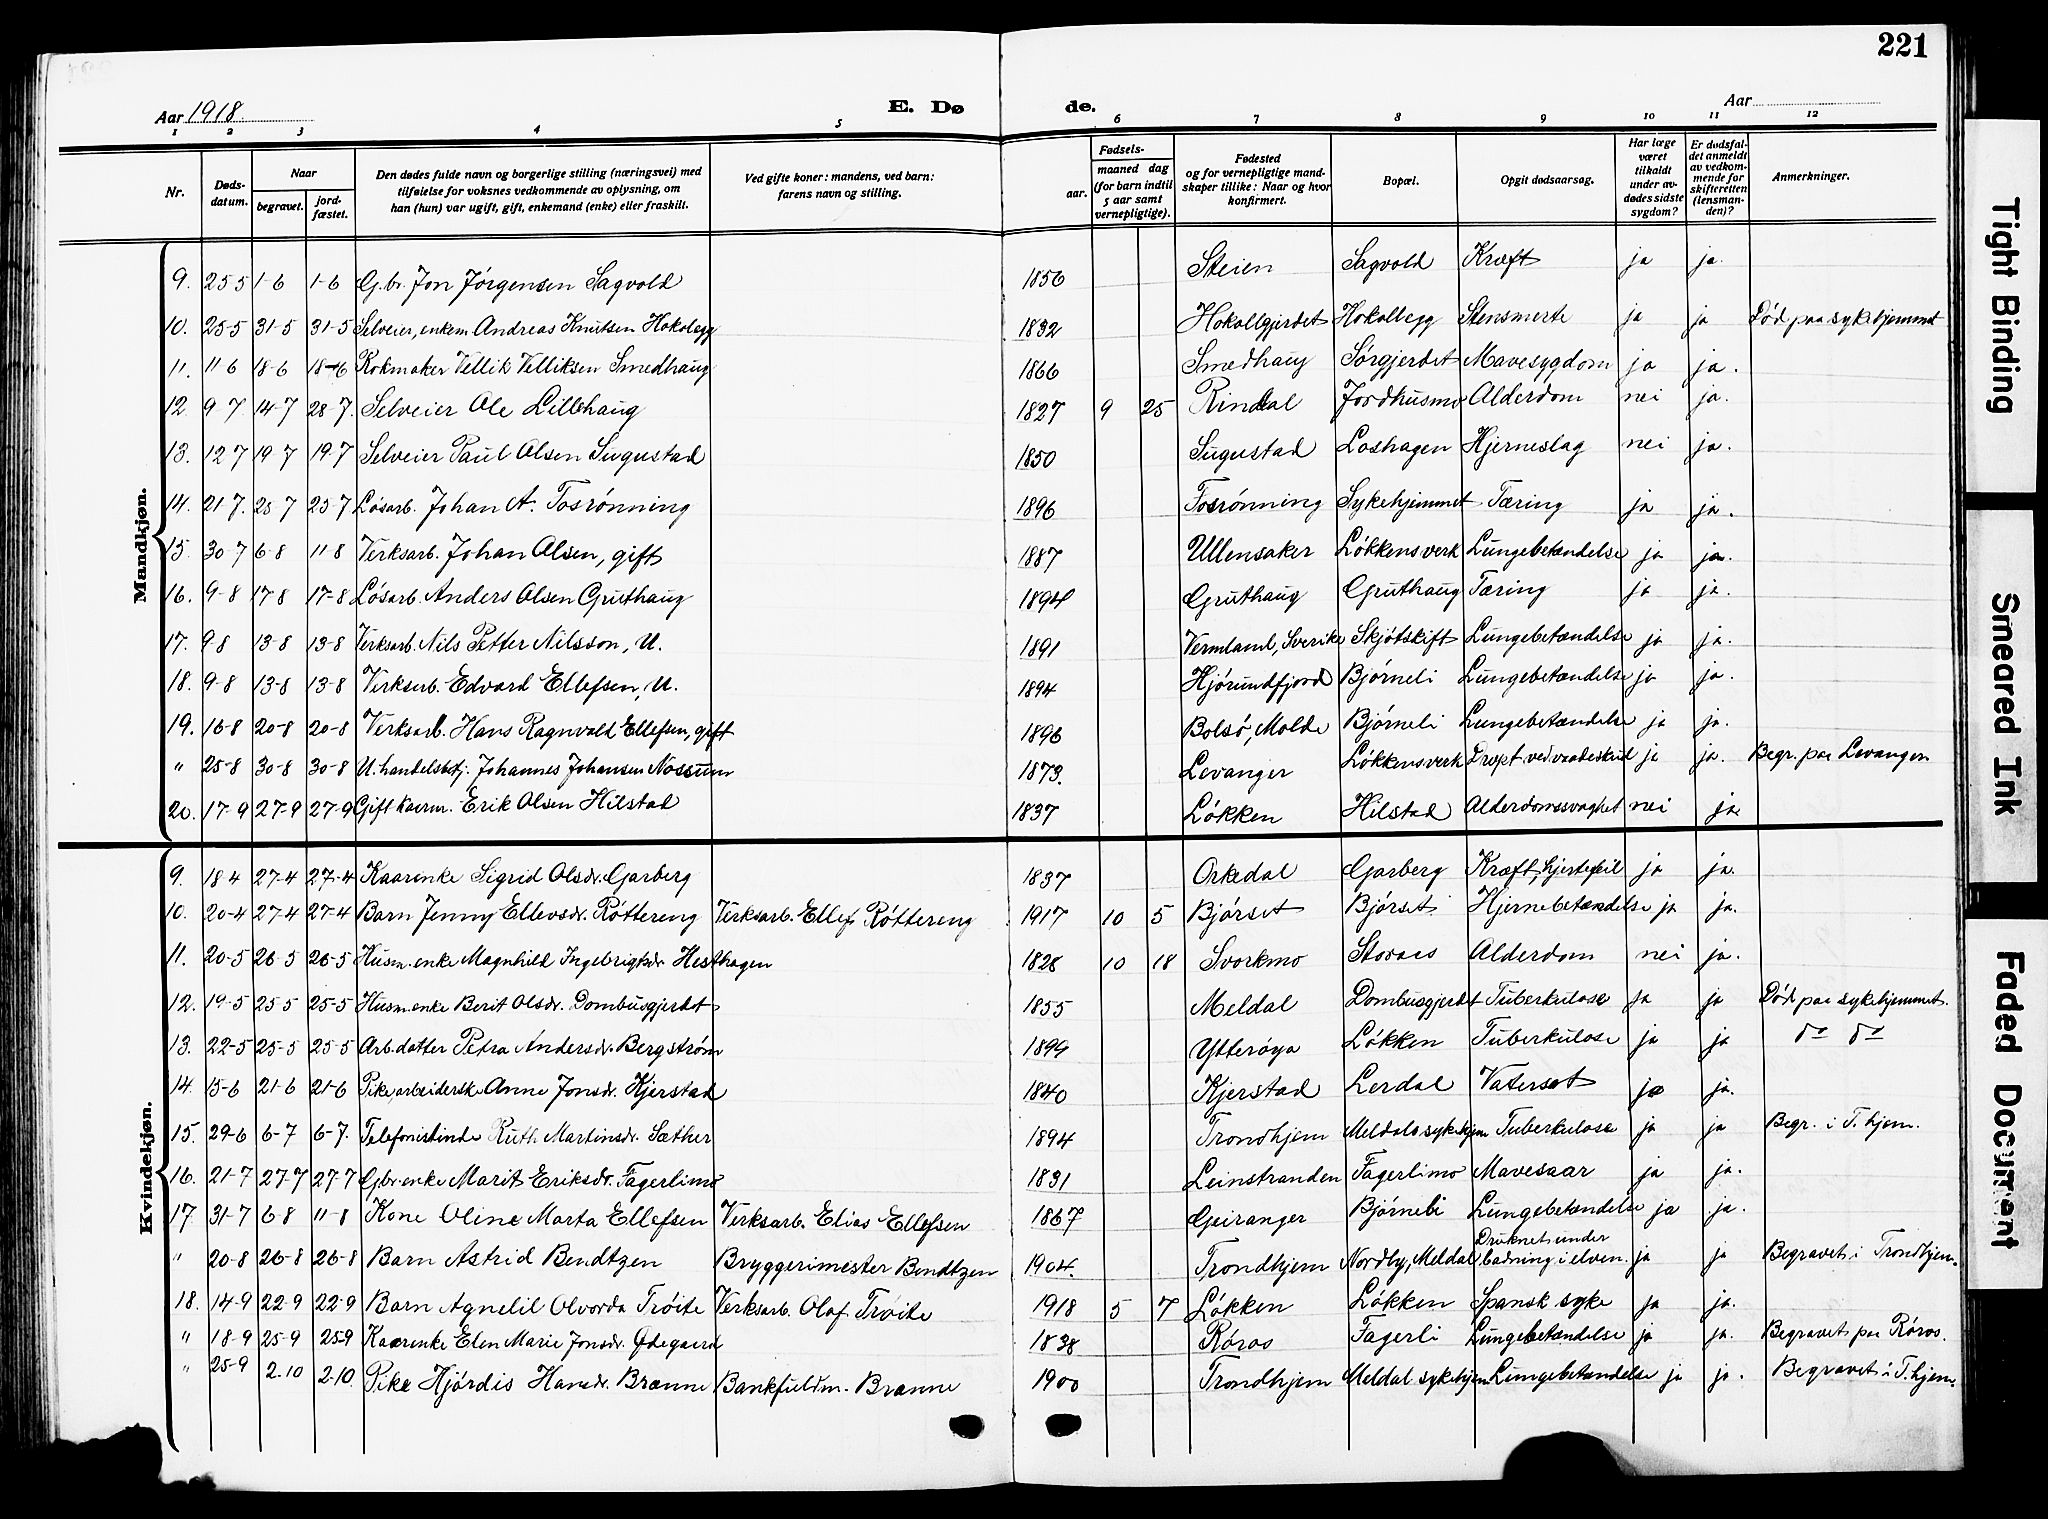 221
Aar 1918.
E. Dø de.
Aar
1 2 3 4 5 6 7 8 9 10 11 12
Nr.
Døds-
datum.
Naar
begravet.
jord-
fæstet.
Den dødes fulde navn og borgerlige stilling (næringsvei) med
tilføielse for voksnes vedkommende av oplysning, om
han (hun) var ugift, gift, enkemand (enke) eller fraskilt.
Ved gifte koner: mandens, ved barn:
farens navn og stilling.
Fødsels-
aar.
maaned dag
(for barn indtil
5 aar samt
vernepligtige).
Fødested
og for vernepligtige mand-
skaper tillike: Naar og hvor
konfirmert.
Bopæl.
Opgit dødsaarsag.
Har læge
været
tilkaldt
under av-
dødes sidste
sygdom?
Er dødsfal-
det anmeldt
av vedkom-
mende for
skifteretten
(lensman-
den)?
Anmerkninger.
Mandkjøn.
9. 25 5 1-6 1-6 G.br. Jon Jörgensen Sagvold 1856 Steien Sagvold Kræft ja ja.
10. 25-5 31-5 31-5 Selveier, enkem. Andreas Knutsen Hokolegg 1832 Hokollgjerdet Hokolbegg Stensmerte ja ja Död paa sykehjemmet
11. 11 6 18-6 18-6 Rokmaker Vellik Velliksen Smedhaug 1866 Smedhaug Sörgjerdet Mavesygdom ja ja.
12. 9 7 14-7 28-7. Selveier Ole Lillehaug 1827 9 25 Rindal Jordhusmo Alderdom nei ja.
13. 12 7 19 7 19.7 Selveier Paul Olsen Sugustad 1850 Sugustad Loshagen Hjerneslag nei ja.
14. 21 7. 25 7 25 7 Lösarb. Johan A. Tosrönning 1896 Tosrönning Sykehjemmet Tæring ja ja.
15. 30-7 6-8 11 8 Verksarb. Johan Olsen, gift 1887 Ullensaker Lökkensverk Lungebetændelse ja ja.
16. 9-8 17 8 17-8 Lösarb. Anders Olsen Gruthaug 1894 Gruthaug Gruthaug Tæring ja ja.
17. 9 8 13-8 13-8 Verksarb. Nils Petter Nilsson, U. 1891 Vermland, Sverike Skjötskift Lungebetændelse ja ja.
18. 9-8 13-8 13-8 Verksarb. Edvard Ellefsen, U. 1894 Hjörundfjord Björneli Lungebetændelse ja ja.
19. 16-8 20-8 20-8 Verksarb. Hans Ragnvald Ellefsen, gift 1896 Bolsö, Molde Björneli Lungebetændelse ja ja.
" 25-8 30-8 30-8 U. handelsbstj. Johannes Johansen Nossum 1873. Levanger Lökkensverk Dræpt ved vaadeskud ja ja. Begr. paa Levanger
20. 17-9 27-9 27-9 Gift kaarm. Erik Olsen Hilstad 1837 Lökken Hilstad Alderdomssvaghet nei ja
Kvindekjøn.
9. 18 4 27-4 27-4 Kaarenke Sigrid Olsdr. Garberg 1837 Orkedal Garberg Kræft, hjertefeil ja ja.
10. 20-4 27-4 27-4 Barn Jenny Ellevsdr. Röttereng Verksarb. Ellef Röttereng 1917 10 5 Björset Björset Hjernebetændelse ja ja.
11. 20-5 26 5 26-5 Husm. enke Magnhild Ingebrigtsdr. Hesthagen 1828 10 18 Svorkmo Storaas Alderdom nei ja.
12. 19-5 25 5 25-5 Husm. enke Berit Olsdr. Dombusgjerdet 1855 Meldal Dombusgjerdet Tuberkulose ja ja Död paa sykehjemmet.
13. 22-5 25-5 25-5 Arb. datter Petra Andersdr. Bergström 1899 Ytteröya Lökken Tuberkulose ja ja do do
14. 15-6 21-6 21-6 Pike, arbeiderske Anne Jonsdr. Kjerstad 1840 Kjerstad Lerdal Vatersot ja ja.
15. 29-6 6-7 6-7. Telefonistinde Ruth Martinsdr. Sæther 1894 Trondhjem Meldals sykehjem Tuberkulose ja ja Begr. i T.hjem.
16. 21-7 27-7 27-7 Gbr. enke Marit Eriksdr. Fagerlimo 1831 Leinstranden Fagerlimo Mavesaar ja ja.
17. 31-7 6 8 11-8 Kone Oline Marta Ellefsen Verksarb. Elias Ellefsen 1867 Geiranger Björneli Lungebetændelse ja ja.
" 20-8 26-8 26-8 Barn Astrid Bendtzen Bryggerimester Bendtzen 1904. Trondhjem Nordby, Meldal Druknet under
badning i elven. ja ja Begravet i Trondhjem.
18. 14-9 22-9 22-9 Barn Agnelil Olvorda Tröite Verksarb. Olaf Tröite 1918 5 7 Lökken Lökken Spansk syke ja ja.
" 18-9 25-9 25-9 Kaarenke Elen Marie Jonsdr. Ödegaard 1838 Röros Fagerli Lungebetændelse ja ja. Begravet paa Röros.
" 25-9 2.10 2.10. Pike Hjördis Hansdr. Brænne Bankfuldm. Brænne 1900 Trondhjem Meldal sykehjem Lungebetændelse ja ja. Begravet i T.hjem.
Tight Binding
Smeared Ink
Faded Document